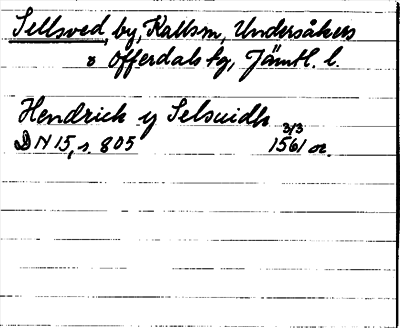 Sellsved, by, Kallsm, Undersåkers
o Offerdals tg, Jämtl. l.
Hendrich y Selsuidh
DN 15, s. 805 3/3 1561 or.